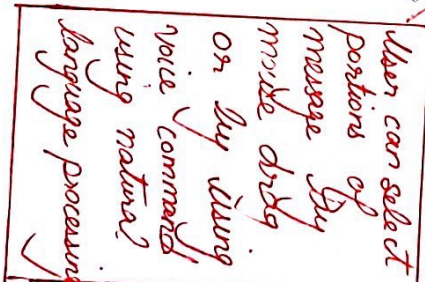 User can select
portions of
message by
mouse drag
or by using
voice command
using natural
language processing